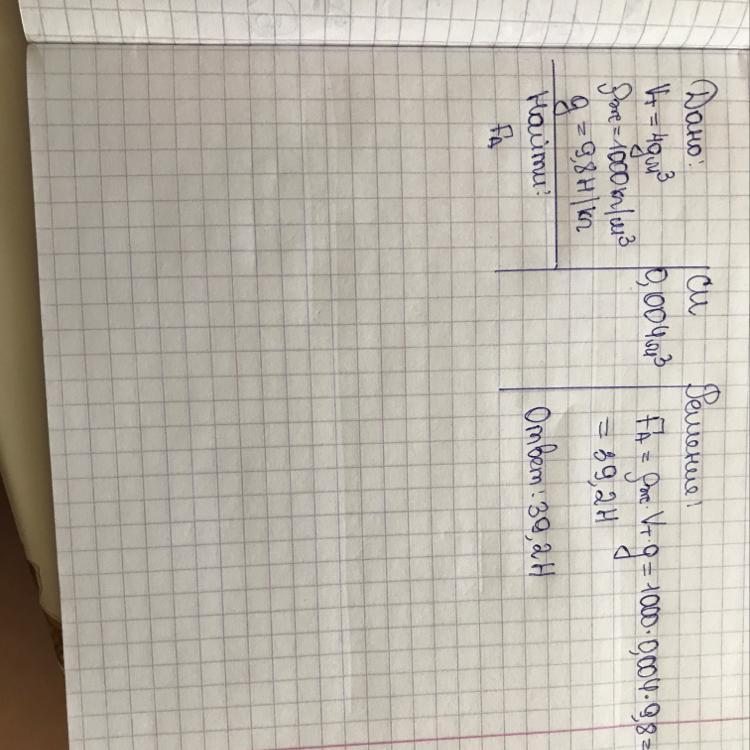 Дано:
Vт = 4дм³
ρж = 1000кг/м³
g = 9,8Н/кг
Найти:
FA
СИ
0,004м³
Решение:
FA = ρж·Vт·g = 1000·0,004·9,8 =
= 39,2Н
Ответ: 39,2Н